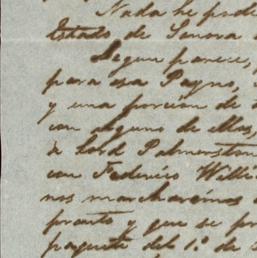 Nada he pod
Estado de Sonora
Segun parece,
para esa Payno,
y una porcion de
con alguno de ellos,
a Lord Palmerston
con Federico Willi
nos marcharémos
pronto y que se po
paquete del 1.º de